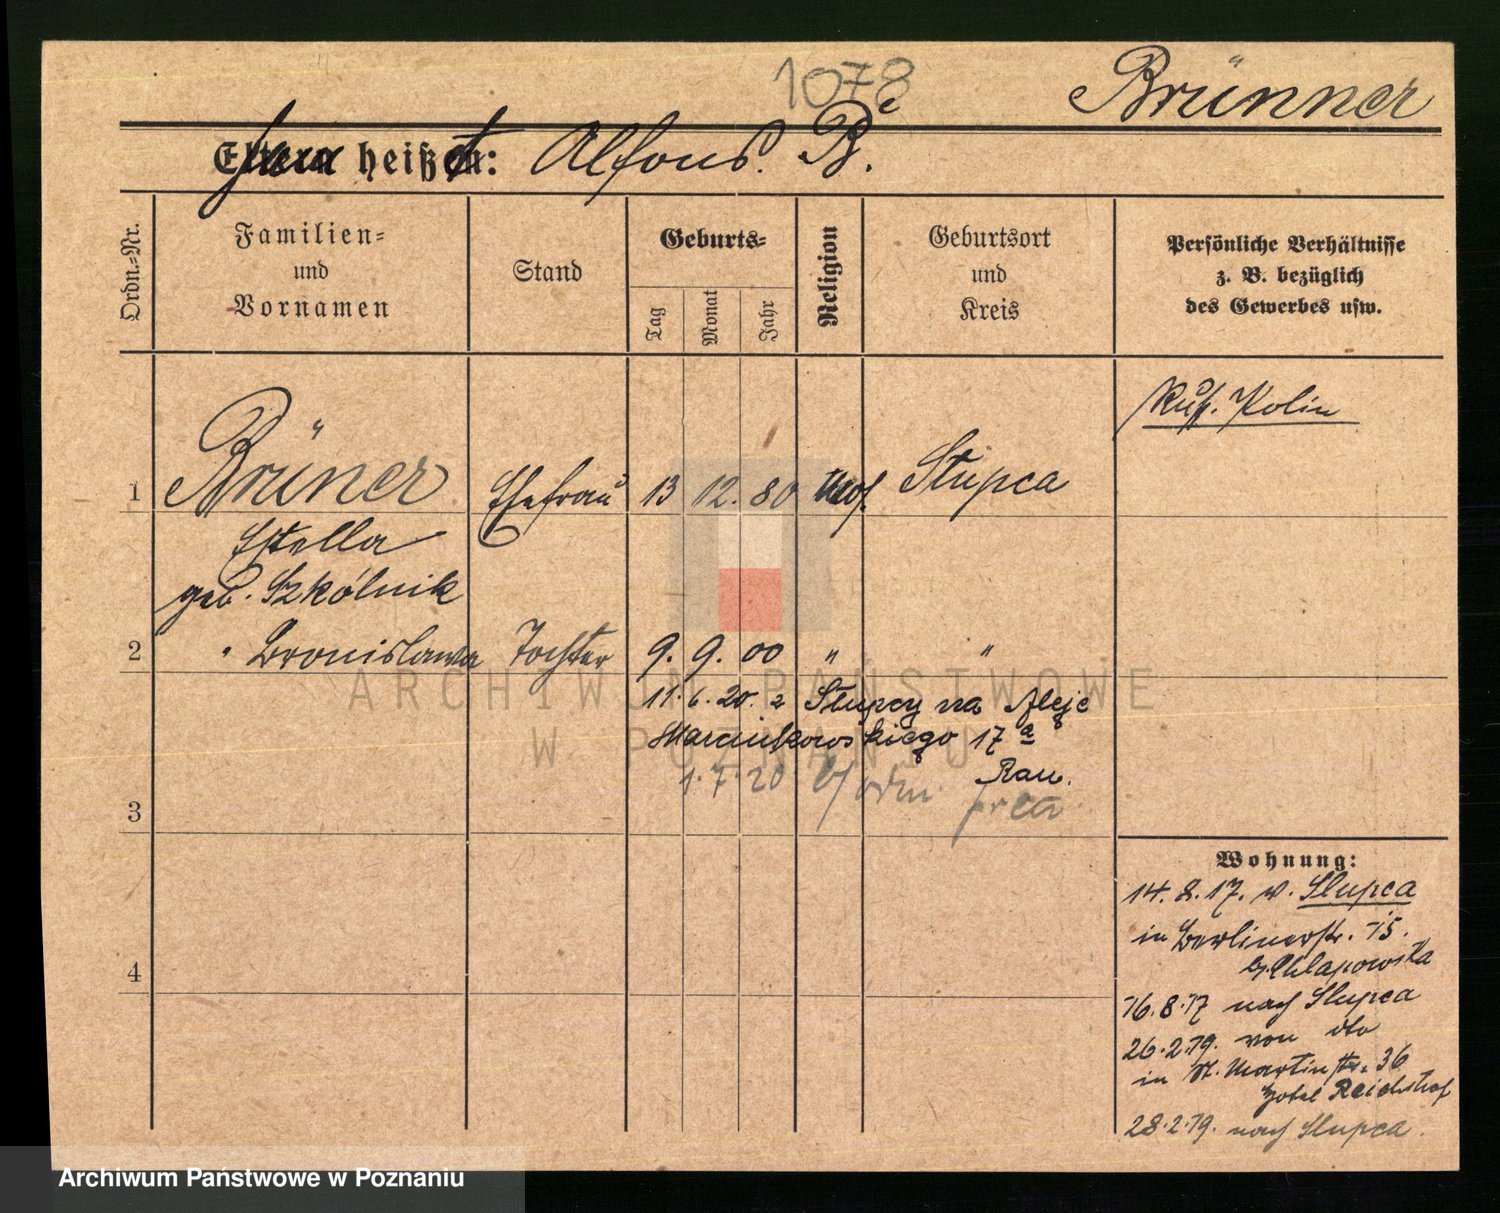 1078
Brünner
Eltern heißen: Alfons. B.
Ordn.-Nr.
Familien-
und
Vornamen
Stand
Geburts-
Tag
Monat
Jahr
Religion
Geburtsort
und
Kreis
Persönliche Verhältnisse
z. B. bezüglich
des Gewerbes usw.
Russ. Polin
1 Brüner Ehefrau 13 12. 80 mos. Slupca
Estella
geb. Szkólnik
2 " Bronislawa Tochter 9. 9. 00 " "
11.6.20. z Słupcy na Aleje
Marcinkowskiego 17a
Rau.
1.7.20
3
4
Wohnung:
14.8.17. v. Slupca
in Berlinerstr. 15.
b. Chlapowska
16.8.17 nach Slupca
26.2.19. von dto
in St. Martinstr. 36
Hotel Reichshof
28.2.19. nach Slupca.
ARCHIWUM PAŃSTWOWE
W POZNANIU
Archiwum Państwowe w Poznaniu